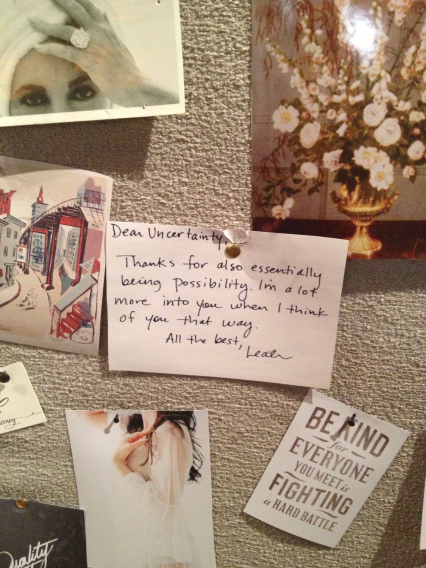 Dear Uncertainty,
Thanks for also essentially
being possibility. I'm a lot
more into you when I think
of you that way.
All the best, Leah
BE KIND
for
EVERYONE
YOU MEET is
FIGHTING
a HARD BATTLE
Quality